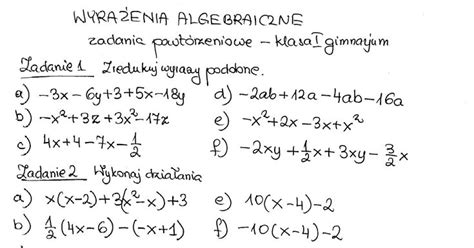 WYRAŻENIA ALGEBRAICZNE
zadania powtórzeniowe – klasa I gimnazjum
Zadanie 1 Zredukuj wyrazy podobne.
a) -3x - 6y + 3 + 5x - 18y d) -2ab + 12a - 4ab - 16a
b) -x² + 3z + 3x² - 17z e) -x² + 2x - 3x + x²
c) 4x + 4 - 7x - 1/2 f) -2xy + 1/2x + 3xy - 3/2x
Zadanie 2 Wykonaj działania
a) x(x-2) + 3(x²-x) + 3 e) 10(x-4) - 2
b) 1/2(4x-6) - (-x+1) f) -10(x-4) - 2